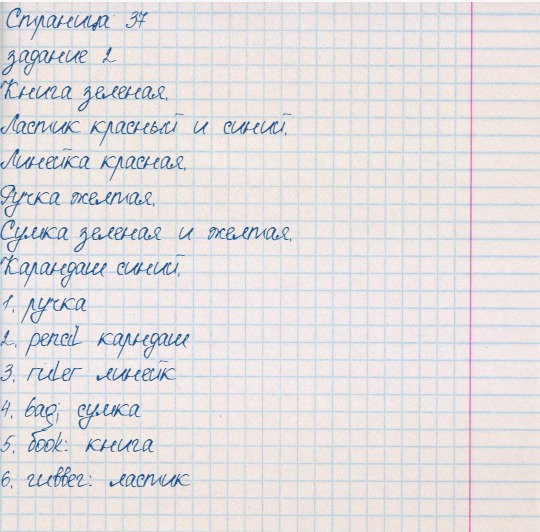 Страница 37
задание 2
Книга зеленая.
Ластик красный и синий.
Линейка красная.
Ручка желтая.
Сумка зеленая и желтая.
Карандаш синий.
1. ручка
2. pencil карндаш
3. ruler линейк
4. bag; сумка
5. book: книга
6. rubber: ластик